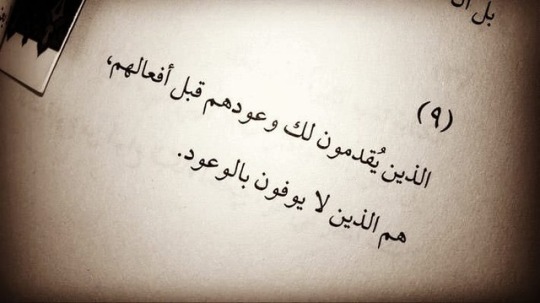 بل ان
(٩)
الذين يُقدمون لك وعودهم قبل أفعالهم،
هم الذين لا يوفون بالوعود.